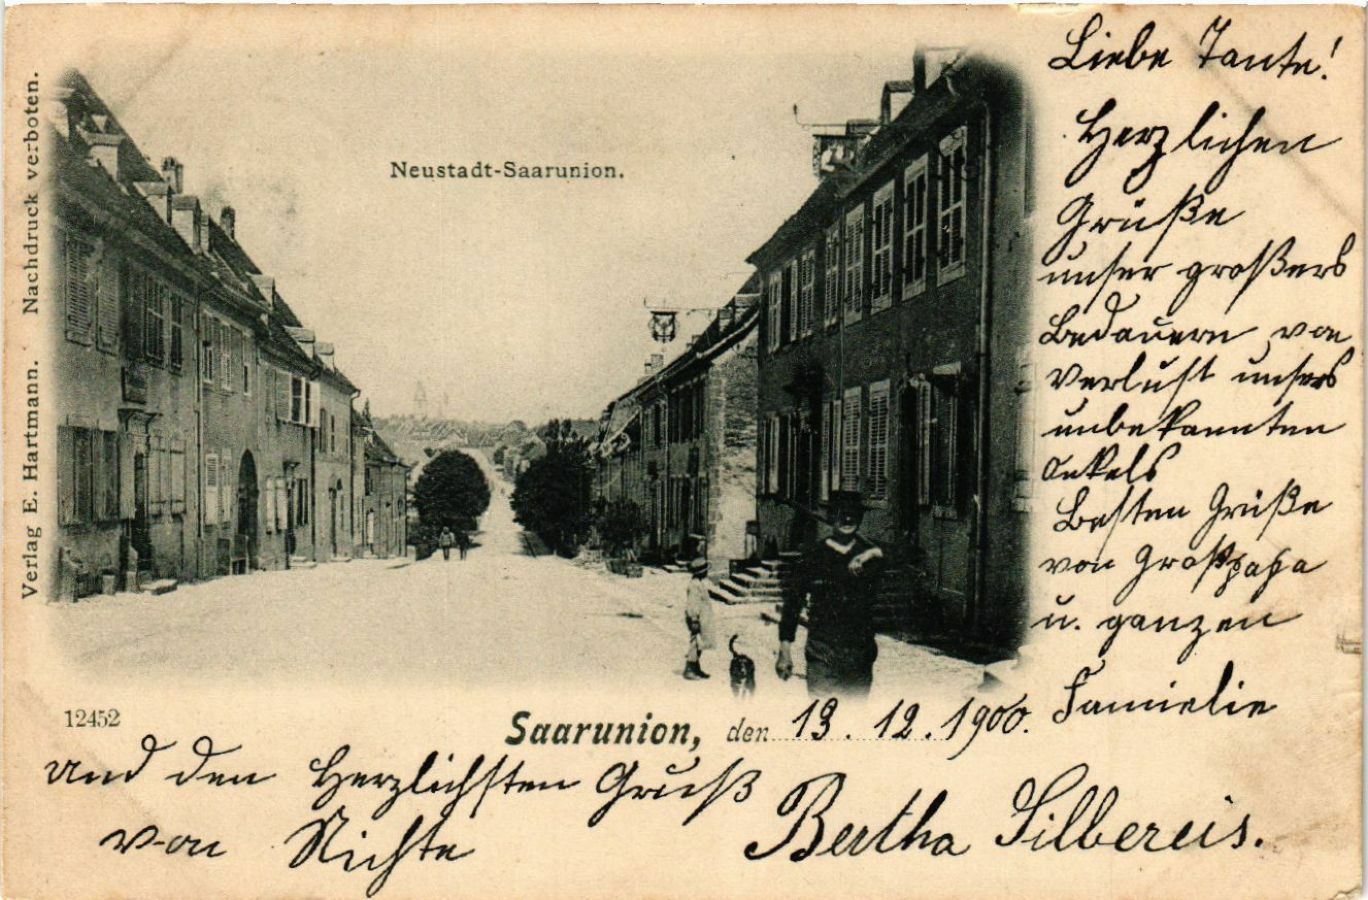 Liebe Tante!
Herzlichen
Grüße
unser großers
Bedauern von
Verlust unsers
unbekannten
Onkels
Besten Grüße
von Großpapa
u. ganzen
Familie
Neustadt-Saarunion.
Verlag E. Hartmann. Nachdruck verboten.
12452
Saarunion, den 13. 12. 1900.
und den Herzlichsten Gruß
von Nichte Bertha Silbereis.